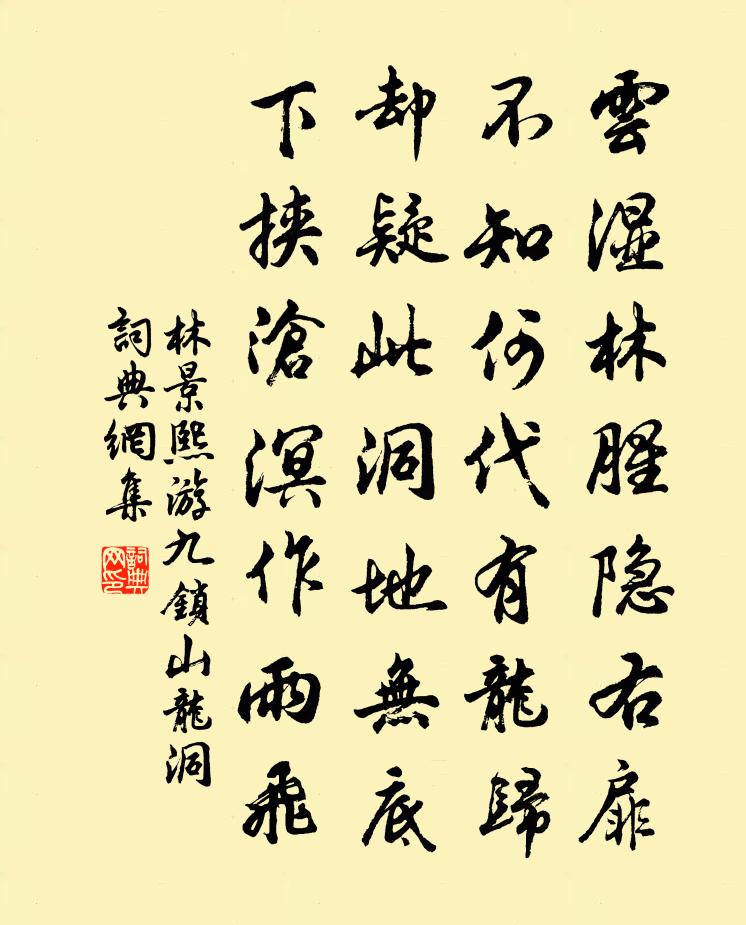 雲湿林腥隐右扉
不知何代有龍歸
却疑此洞地無底
下挾滄溟作雨飛
林景熙游九鎖山龍洞
詞典網集
詞典网印